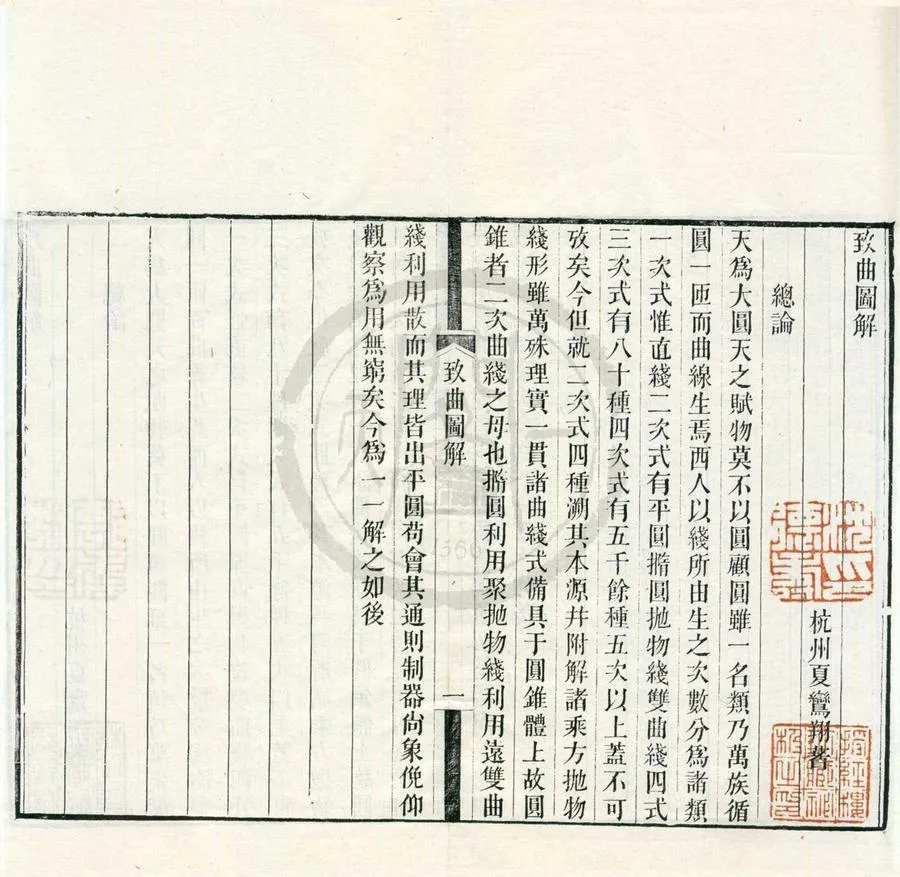 致曲圖解
杭州夏鸞翔著
總論
天爲大圓天之賦物莫不以圓顧圓雖一名類乃萬族循
圓一匝而曲線生焉西人以綫所由生之次數分爲諸類
一次式惟直綫二次式有平圓撱圓拋物綫雙曲綫四式
三次式有八十種四次式有五千餘種五次以上蓋不可
攷矣今但就二次式四種溯其本源幷附解諸乘方拋物
綫形雖萬殊理實一貫諸曲綫式備具于圓錐體上故圓
錐者二次曲綫之母也撱圓利用聚拋物綫利用遠雙曲
致曲圖解
一
綫利用散而其理皆出平圓苟會其通則制器尙象俛仰
觀察爲用無窮矣今爲一一解之如後